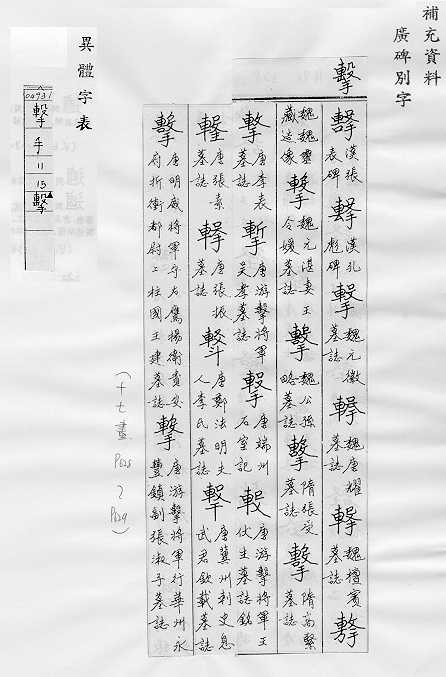 補充資料
廣碑別字
擊
擊漢張表碑擊漢孔彪碑擊魏元徽墓誌擊魏唐耀墓誌擊魏檀賓墓誌擊
魏魏靈藏造像擊魏元湛妻王令媛墓誌擊魏公孫略墓誌擊隋張受墓誌擊隋尚墓誌
擊唐李表墓誌擊唐游擊將軍吳孝墓誌擊唐端州石室記擊唐游擊將軍王伏生墓誌銘
擊唐張素墓誌擊唐張振墓誌擊唐鄭法明夫人李氏墓誌擊唐冀州刺史息武君欽載墓誌
擊唐明威將軍守右鷹揚衛貴安府折衝都尉上柱國王建墓誌擊唐游擊將軍行華州永豐鎮副張淑子墓誌
異體字表
04931
擊
手
11
15
擊
(十七畫 P125 2 P129)